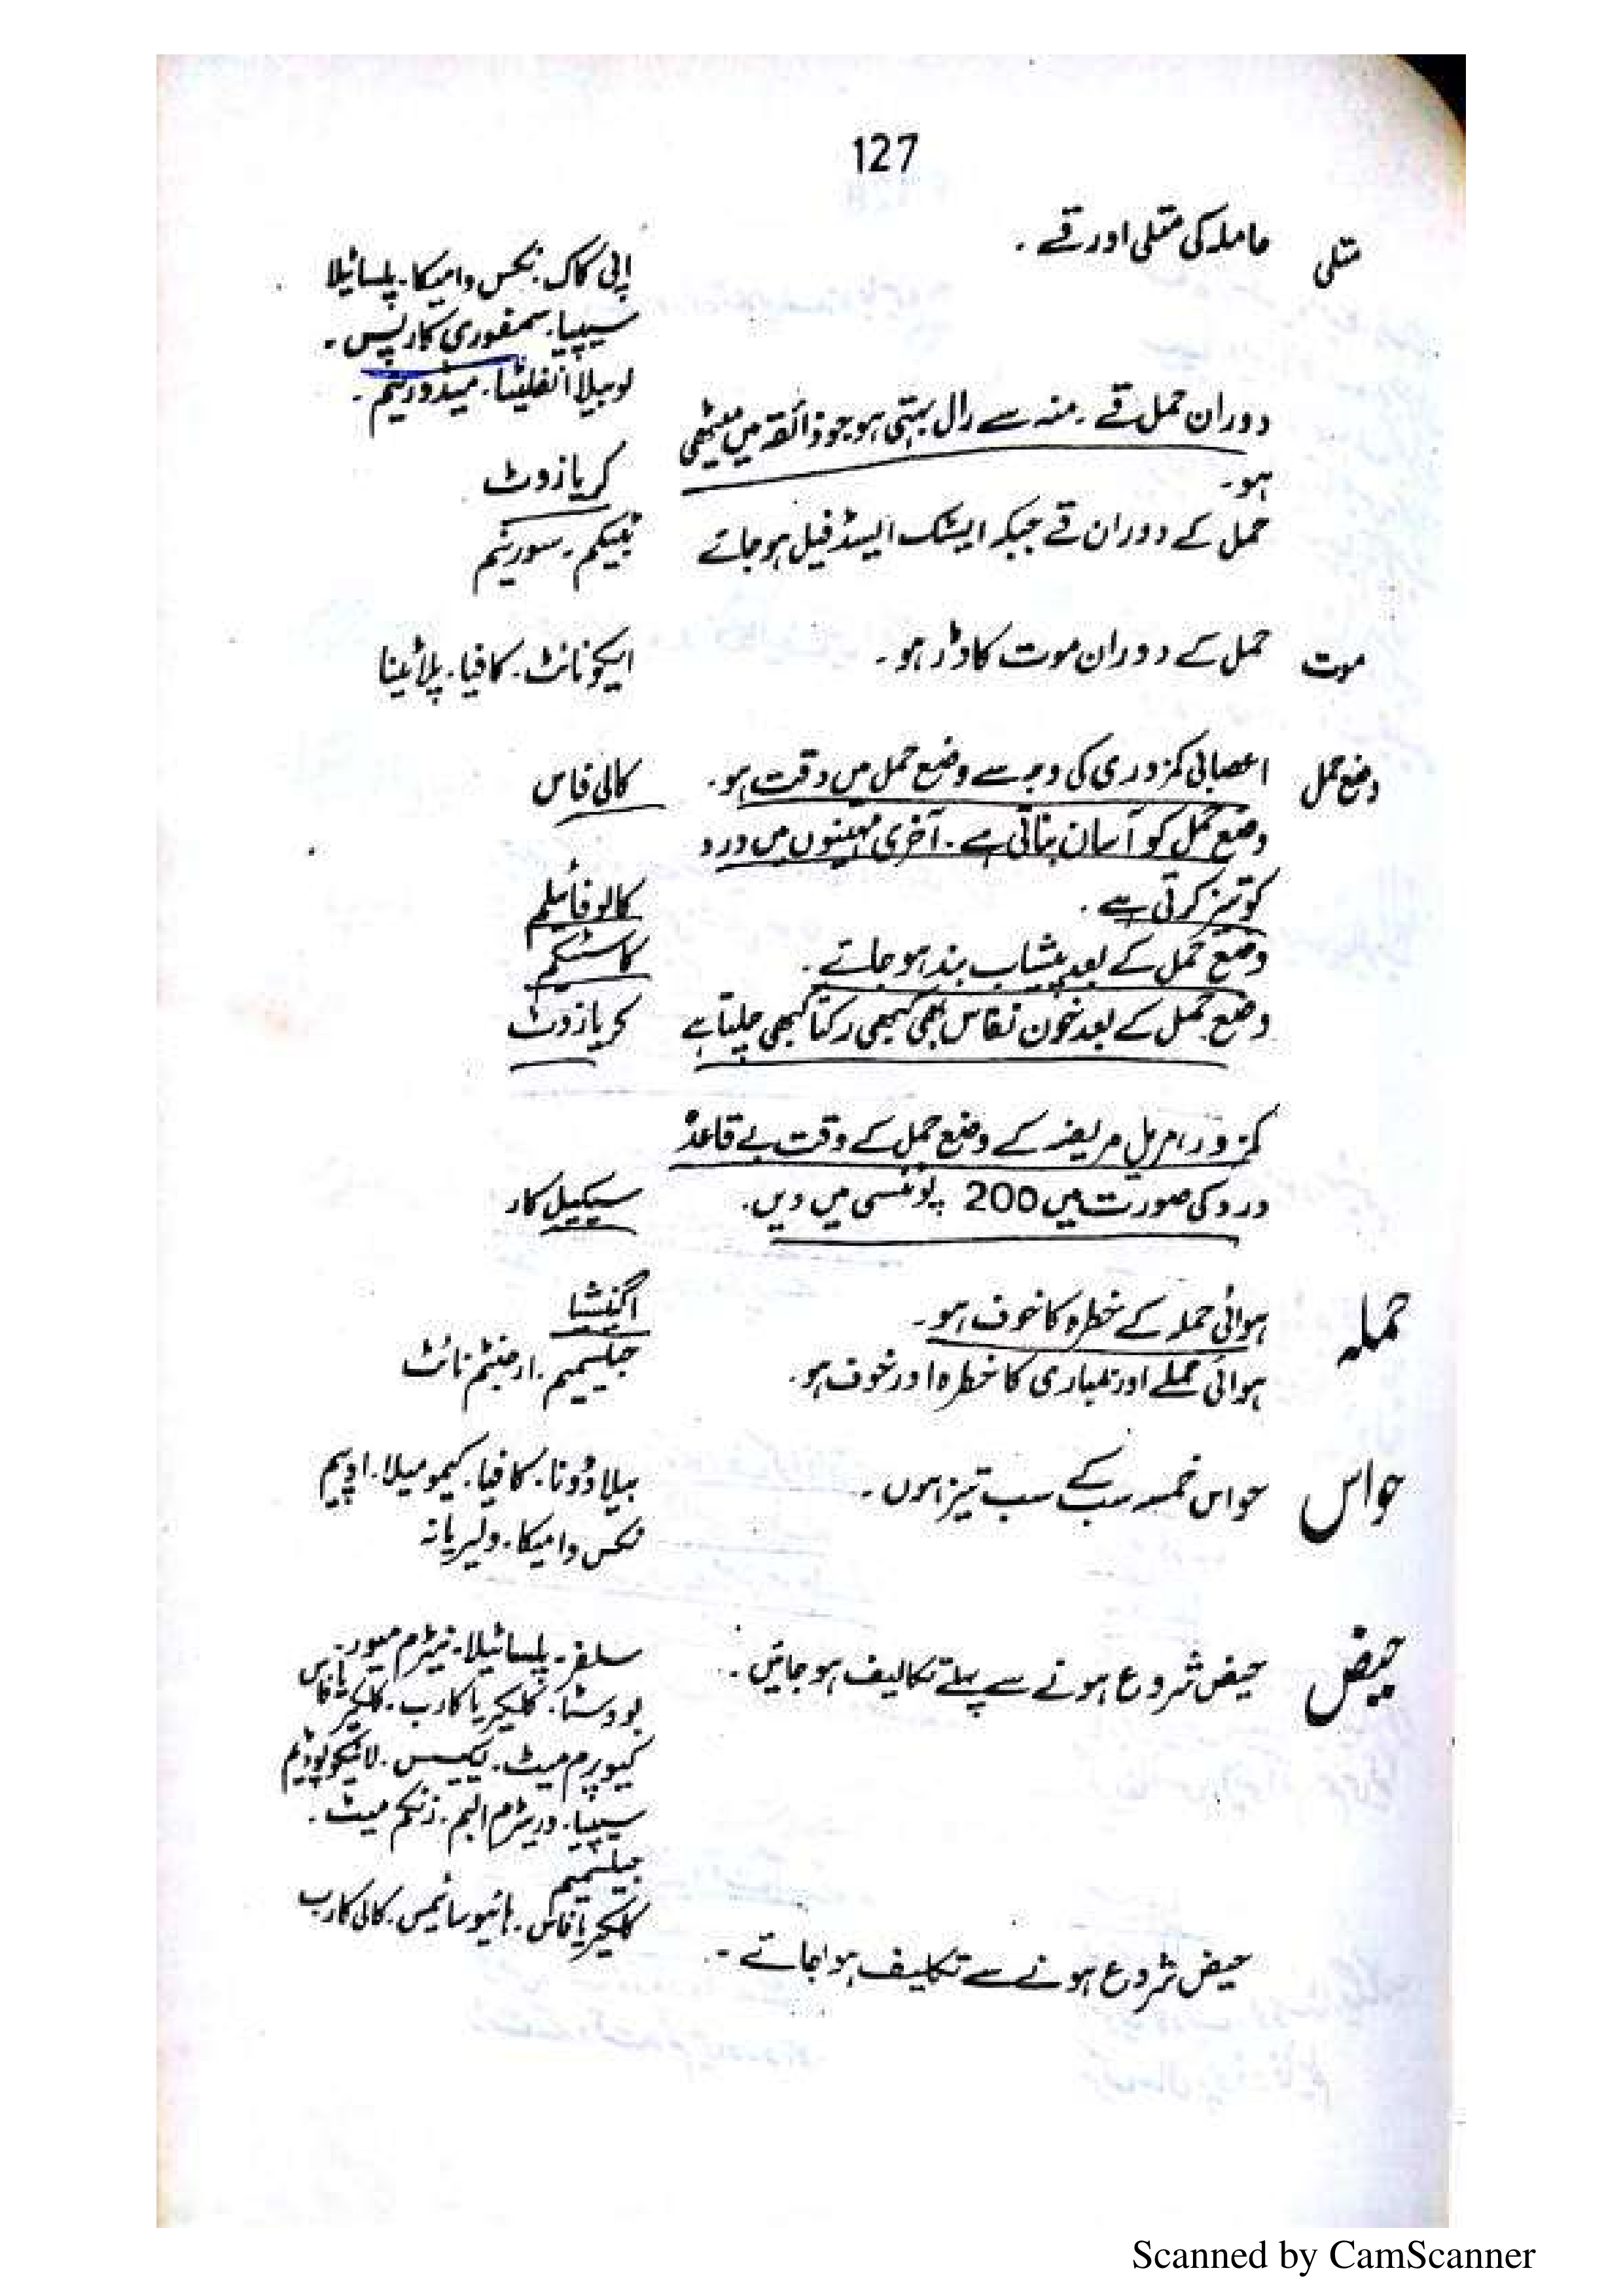 127
متلی حاملہ کی متلی اور قے ۔
اپی کاک۔ نکس وامیکا۔ پلساٹیلا
سیپیا۔ سمفوری کارپس ۔
لوبیلا انفلیٹا۔ میڈورینم ۔
دوران حمل قے ۔ منہ سے رال بہتی ہو جو ذائقہ میں میٹھی
ہو۔ کریازوٹ
حمل کے دوران قے جبکہ ایسٹک ایسڈ فیل ہو جائے ٹبیکم ۔ سورینم
موت حمل کے دوران موت کا ڈر ہو ۔ ایکونائٹ ۔ کافیا ۔ پلاٹینا
وضع حمل اعصابی کمزوری کی وجہ سے وضع حمل میں دقت ہو ۔ کالی فاس
وضع حمل کو آسان بناتی ہے ۔ آخری مہینوں میں درد
کو تیز کرتی ہے ۔ کالوفائلم
وضع حمل کے بعد پیشاب بند ہو جائے ۔ کاسٹیکم
وضع حمل کے بعد خون نفاس بھی کبھی رکتا کبھی چلتا ہے کریازوٹ
کمزور، مریل مریضہ کے وضع حمل کے وقت بے قاعدہ
درد کی صورت میں 200 پوٹنسی میں دیں۔ سیکیل کار
حملہ ہوائی حملہ کے خطرہ کا خوف ہو ۔ اگنیشیا
ہوائی حملے اور بمباری کا خطرہ اور خوف ہو ۔ جیلسیمیم ۔ ارجنٹم نائٹ
حواس حواس خمسہ سب کے سب تیز ہوں ۔ بیلاڈونا ۔ کافیا ۔ کیمومیلا ۔ اوپیم
نکس وامیکا ۔ ولیریانہ
حیض حیض شروع ہونے سے پہلے تکالیف ہو جائیں ۔ سلفر ۔ پلساٹیلا ۔ نیٹرم میور ۔
بووسٹا ۔ کلکیریا کارب ۔ کلکیریا فاس
کیوپرم میٹ ۔ لیکیسس ۔ لائیکوپوڈیم
سیپیا ۔ وریٹرم البم ۔ زنکم میٹ ۔
جیلسیمیم
کلکیریا فاس ۔ ہائیوسائمس ۔ کالی کارب
حیض شروع ہونے سے تکلیف ہو جائے ۔
Scanned by CamScanner